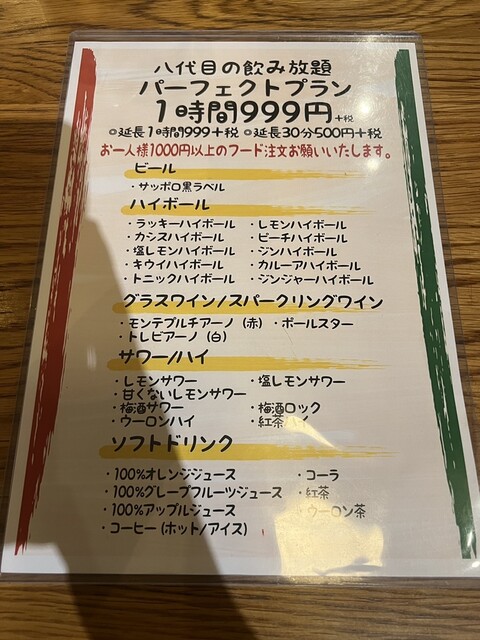 八代目の飲み放題
パーフェクトプラン
1時間999円+税
◎延長1時間999+税 ◎延長30分500円+税
お一人様1000円以上のフード注文お願いいたします。
ビール
・サッポロ黒ラベル
ハイボール
・ラッキーハイボール ・レモンハイボール
・カシスハイボール ・ピーチハイボール
・塩レモンハイボール ・ジンハイボール
・キウイハイボール ・カルーアハイボール
・トニックハイボール ・ジンジャーハイボール
グラスワイン/スパークリングワイン
・モンテプルチアーノ (赤) ・ポールスター
・トレビアーノ (白)
サワー/ハイ
・レモンサワー ・塩レモンサワー
・甘くないレモンサワー
・梅酒サワー ・梅酒ロック
・ウーロンハイ ・紅茶ハイ
ソフトドリンク
・100%オレンジジュース ・コーラ
・100%グレープフルーツジュース ・紅茶
・100%アップルジュース ・ウーロン茶
・コーヒー (ホット/アイス)